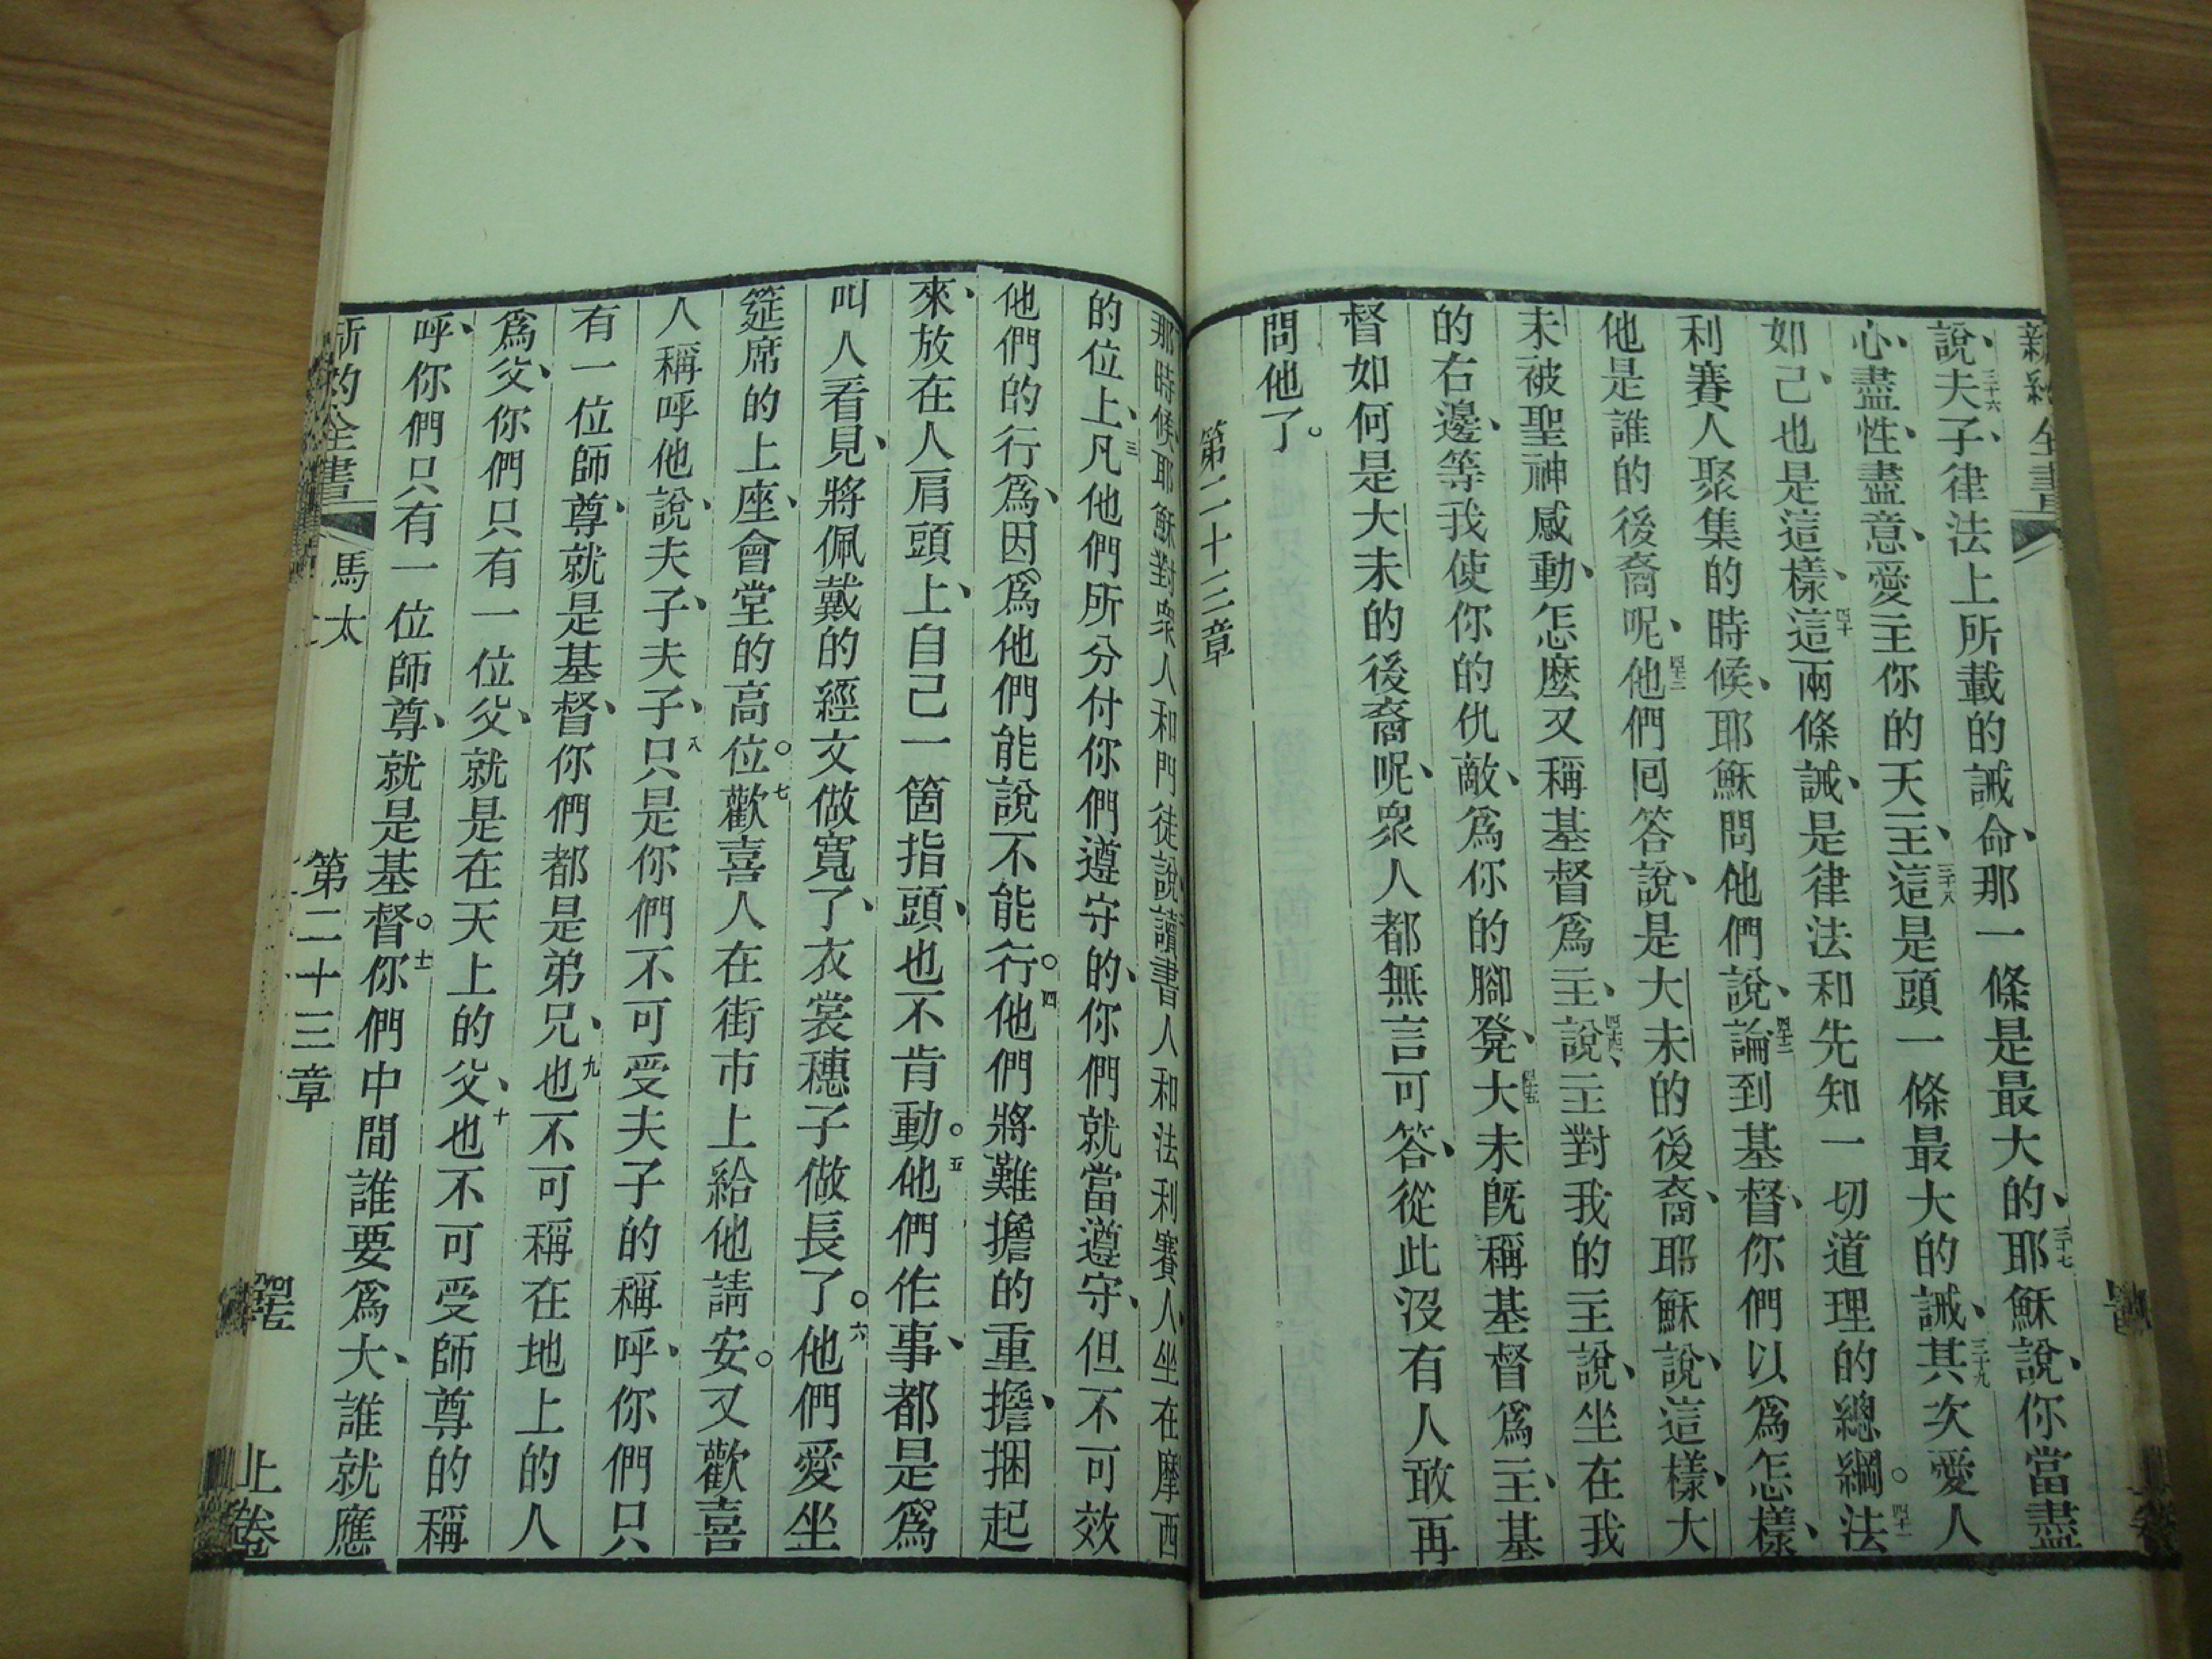 新約全書
說、三十六夫子、律法上所載的誡命、那一條是最大的、三十七耶穌說、你當盡
心、盡性、盡意、愛主你的天主、三十八這是頭一條最大的誡、三十九其次愛人
如己、也是這樣、四十這兩條誡、是律法和先知一切道理的總綱。四十一法
利賽人聚集的時候、耶穌問他們說、四十二論到基督、你們以爲怎樣、
他是誰的後裔呢、四十三他們囘答說、是大未的後裔、耶穌說、這樣、大
未被聖神感動、怎麽又稱基督爲主、說、四十四主對我的主說、坐在我
的右邊、等我使你的仇敵、爲你的腳凳、四十五大未旣稱基督爲主、基
督如何是大未的後裔呢、衆人都無言可答、從此沒有人敢再
問他了。
第二十三章
那時候、耶穌對衆人和門徒說、二讀書人和法利賽人、坐在摩西
的位上、三凡他們所分付你們遵守的、你們就當遵守、但不可效
他們的行爲、因爲他們能說不能行。四他們將難擔的重擔、捆起
來、放在人肩頭上、自己一箇指頭、也不肯動。五他們作事、都是爲
叫人看見、將佩戴的經文做寬了、衣裳穗子做長了。六他們愛坐
筵席的上座、會堂的高位。七歡喜人在街市上給他請安。又歡喜
人稱呼他、說、夫子、夫子、八只是你們不可受夫子的稱呼、你們只
有一位師尊、就是基督、你們都是弟兄、九也不可稱在地上的人
爲父、你們只有一位父、就是在天上的父、十也不可受師尊的稱
呼、你們只有一位師尊、就是基督。十一你們中間誰要爲大、誰就應
新約全書 馬太 第二十三章 上卷